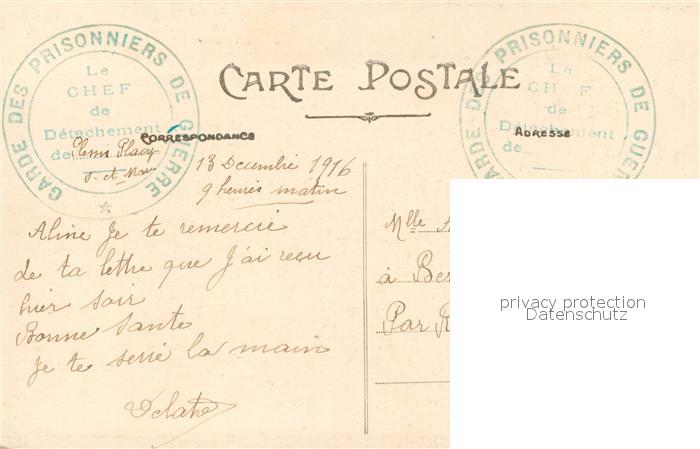 GARDE DES PRISONNIERS DE GUERRE
Le
CHEF
de
Détachement
de
CARTE POSTALE
CORRESPONDANCE
GARDE DES PRISONNIERS DE GUERRE
Le
CHEF
de
Détachement
de
ADRESSE
13 Decembre 1916
9 heures matin
Aline Je te remercie
de ta lettre que J'ai reçu
hier soir
Bonne Sante
Je te serre la main
Mlle
à
Par
privacy protection
Datenschutz